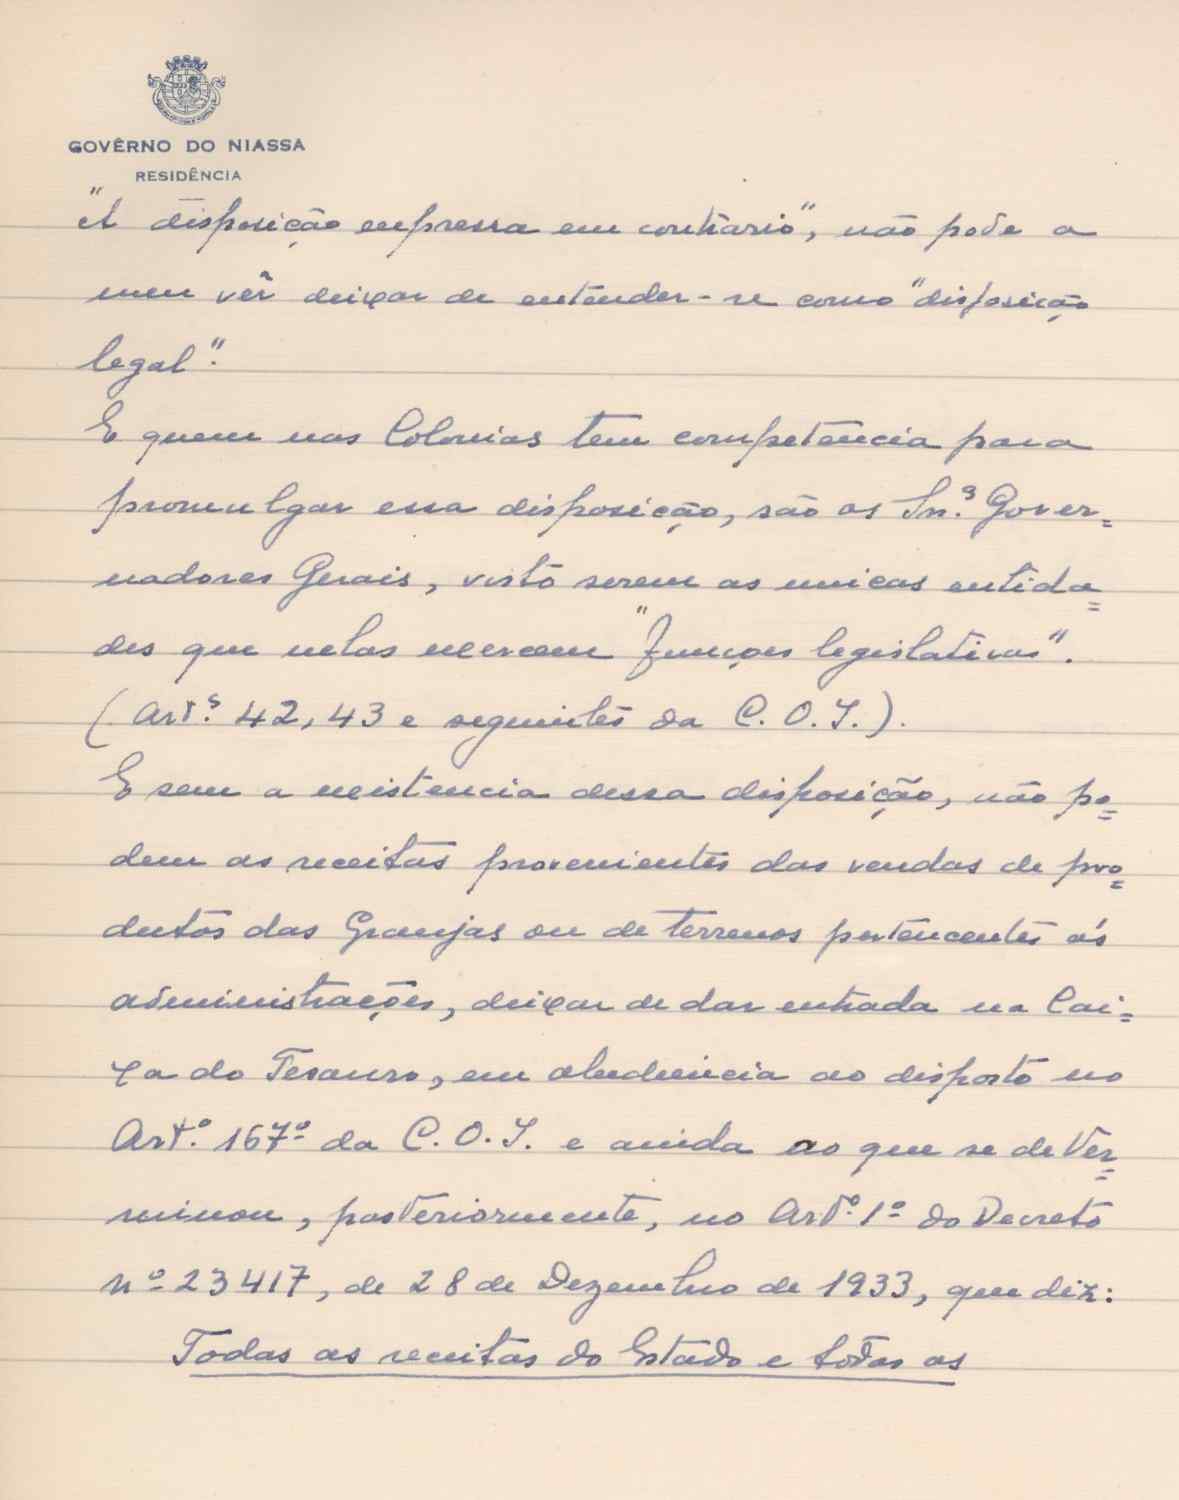 GOVÊRNO DO NIASSA
RESIDÊNCIA
"A disposição expressa em contrário", não pode a
meu vêr deixar de entender-se como "disposição
legal".
E quem nas Colonias tem competência para
promulgar essa disposição, são os Snr.s Gover=
nadores Gerais, visto serem as unicas entida=
des que nelas exercem "funções legislativas".
(Art.s 42, 43 e seguintes da C. O. I.).
E sem a existencia dessa disposição, não po=
dem as receitas provenientes das vendas de pro=
dutos das Granjas ou de terrenos pertencentes ás
administrações, deixar de dar entrada na Cai=
xa do Tesouro, em obediencia ao disposto no
Artº. 167º da C. O. I. e ainda ao que se deter=
minou, posteriormente, no Artº. 1º do Decreto
nº 23417, de 28 de Dezembro de 1933, que diz:
Todas as receitas do Estado e todas as